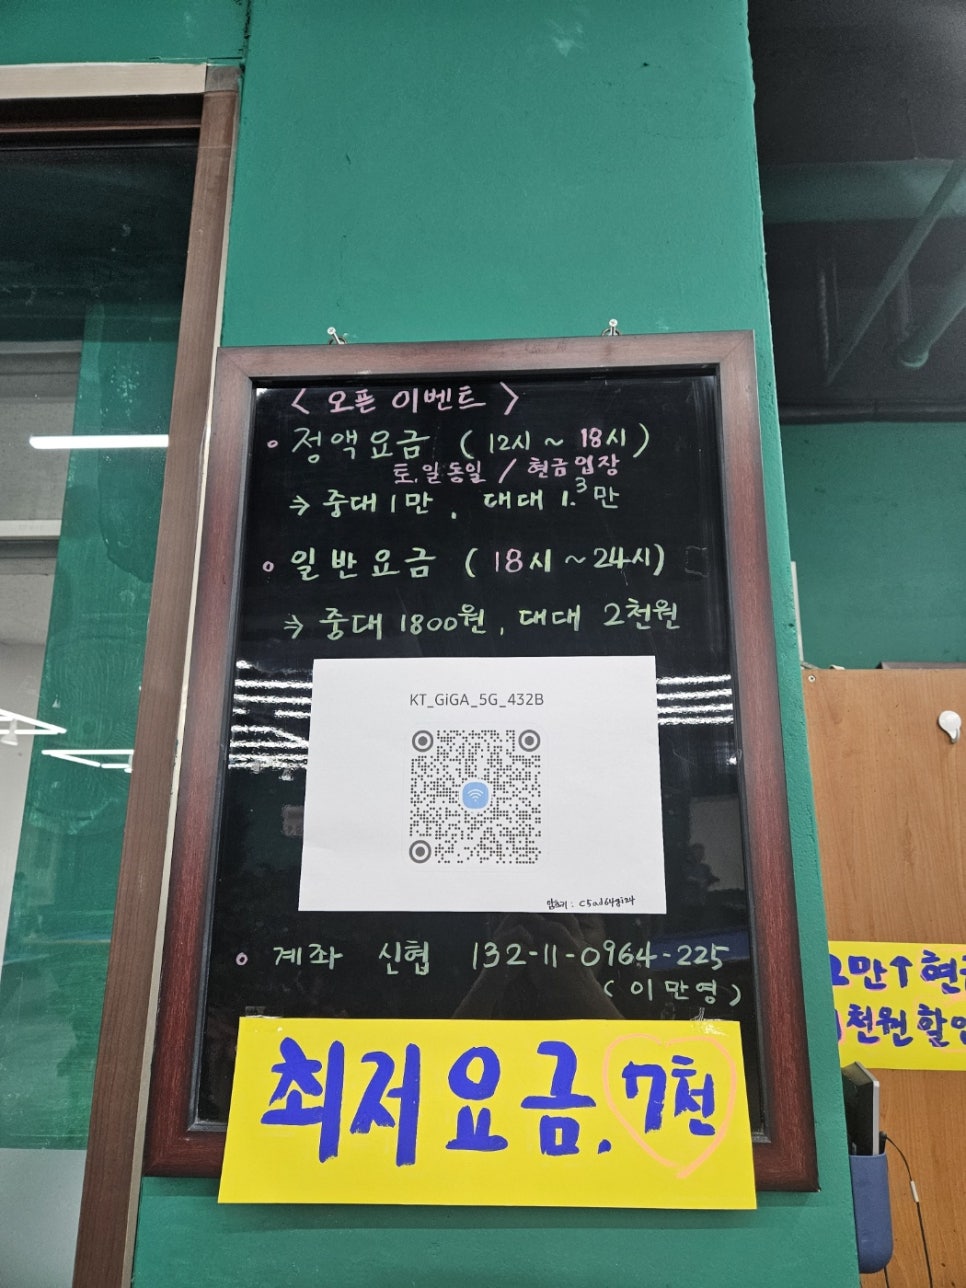 < 오픈 이벤트 >
정액요금 ( 12시 ~ 18시 )
토.일 동일 / 현금입장
→ 중대 1만 , 대대 1.3만
일반요금 ( 18시 ~ 24시)
→ 중대 1800원, 대대 2천원
KT_GiGA_5G_432B
계좌 신협 132-11-0964-225
( 이만영 )
최저요금. 7천
2만↑ 현금
1천원 할인